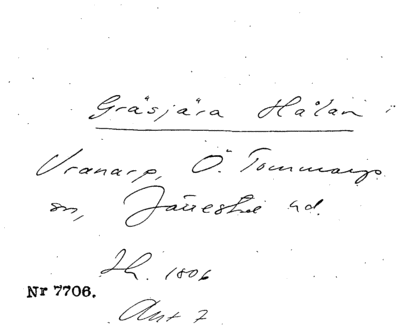 Gräsjära Hålan i
Vranarp, Ö. Tommarps
sn, Järrestad hd.
Lh. 1806
Nr 7706.
Akt 7